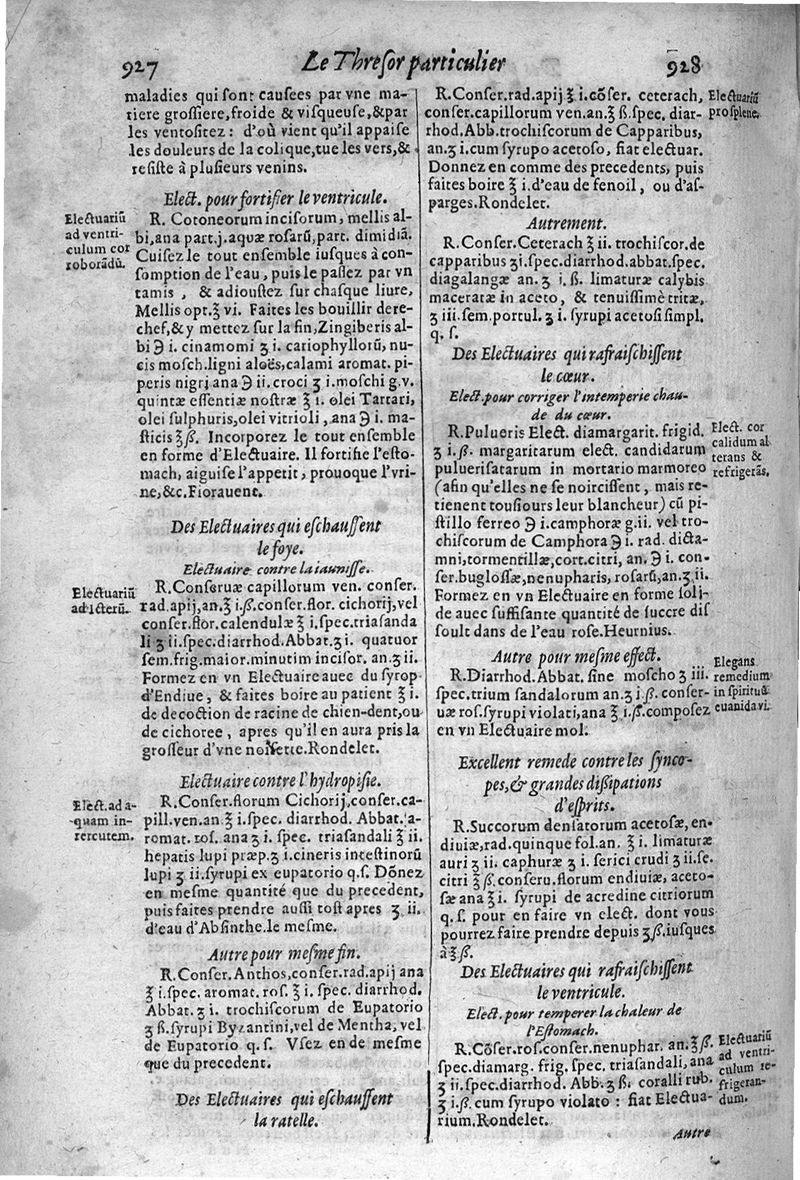 927
Le Thresor particulier
928
maladies qui sont causees par vne ma-
tiere grossiere, froide & visqueuse, & par
les ventositez : d'où vient qu'il appaise
les douleurs de la colique, tue les vers, &
resiste à plusieurs venins.
Elect. pour fortifier le ventricule.
Electuariū
ad ventri-
culum cor
roborādū.
R. Cotoneorum incisorum, mellis al-
bi, ana part.j. aquæ rosarū, part. dimidiā.
Cuisez le tout ensemble iusques à con-
somption de l'eau, puis le passez par vn
tamis , & adioustez sur chasque liure,
Mellis opt. ℥ vi. Faites les bouillir dere-
chef, & y mettez sur la fin, Zingiberis al-
bi ℈ i. cinamomi ʒ i. cariophyllorū, nu-
cis mosch. ligni aloës, calami aromat. pi-
peris nigri ana ℈ ii. croci ʒ i. moschi g.v.
quintæ essentiæ nostræ ℥ i. olei Tartari,
olei sulphuris, olei vitrioli , ana ℈ i. ma-
sticis ℥ ß. Incorporez le tout ensemble
en forme d'Electuaire. Il fortifie l'esto-
mach, aiguise l'appetit, prouoque l'vri-
ne, &c. Fiorauent.
Des Electuaires qui eschauffent
le foye.
Electuaire contre la iaunisse.
Electuariū
ad icterū.
R. Conseruæ capillorum ven. conser.
rad. apij, an. ℥ i.ß. conser. flor. cichorij, vel
conser. flor. calendulæ ℥ i. spec. triasanda
li ʒ ii. spec. diarrhod. Abbat. ʒ i. quatuor
sem. frig. maior. minutim incisor. an. ʒ ii.
Formez en vn Electuaire auec du syrop
d'Endiue, & faites boire au patient ℥ i.
de decoction de racine de chien-dent, ou
de cichoree , apres qu'il en aura pris la
grosseur d'vne noisette. Rondelet.
Electuaire contre l'hydropisie.
Elect. ad a-
quam in-
tercutem.
R. Conser. florum Cichorij, conser. ca-
pill. ven. an. ℥ i. spec. diarrhod. Abbat. a-
romat. ros. ana ʒ i. spec. triasandali ℥ ii.
hepatis lupi præp. ʒ i. cineris intestinorū
lupi ʒ ii. syrupi ex eupatorio q.s. Dōnez
en mesme quantité que du precedent,
puis faites prendre aussi tost apres ʒ ii.
d'eau d'Absinthe. le mesme.
Autre pour mesme fin.
R. Conser. Anthos, conser. rad. apij ana
℥ i. spec. aromat. ros. ℥ i. spec. diarrhod.
Abbat. ʒ i. trochiscorum de Eupatorio
ʒ ß. syrupi Byzantini, vel de Mentha, vel
de Eupatorio q.s. Vsez en de mesme
que du precedent.
Des Electuaires qui eschauffent
la ratelle.
R. Conser. rad. apij ℥ i. cōser. ceterach,
conser. capillorum ven. an. ℥ ß. spec. diar-
rhod. Abb. trochiscorum de Capparibus,
an. ʒ i. cum syrupo acetoso, fiat electuar.
Donnez en comme des precedents, puis
faites boire ℥ i. d'eau de fenoil, ou d'as-
parges. Rondelet.
Electuariū
pro splene.
Autrement.
R. Conser. Ceterach ℥ ii. trochiscor. de
capparibus ʒ i. spec. diarrhod. abbat. spec.
diagalangæ an. ʒ i.ß. limaturæ calybis
maceratæ in aceto, & tenuissimè tritæ,
ʒ iii. sem. portul. ʒ i. syrupi acetosi simpl.
q. s.
Des Electuaires qui rafraischissent
le cœur.
Elect. pour corriger l'intemperie chau-
de du cœur.
R. Pulueris Elect. diamargarit. frigid.
ʒ i.ß. margaritarum elect. candidarum
puluerisatarum in mortario marmoreo
(afin qu'elles ne se noircissent, mais re-
tienent tousiours leur blancheur) cū pi-
stillo ferreo ℈ i. camphoræ g.ii. vel tro-
chiscorum de Camphora ℈ i. rad. dicta-
mni, tormentillæ, cort. citri, an. ℈ i. con-
ser. buglossæ, nenupharis, rosarū, an. ʒ ii.
Formez en vn Electuaire en forme soli-
de auec suffisante quantité de succre dis
soult dans de l'eau rose. Heurnius.
Elect. cor
calidum al
terans &
refrigerās.
Autre pour mesme effect.
R. Diarrhod. Abbat. sine moscho ʒ iii.
spec. trium sandalorum an. ʒ i.ß. conser-
uæ ros. syrupi violati, ana ℥ i.ß. composez
en vn Electuaire mol.
Elegans
remedium
in spiritus
euanida vi.
Excellent remede contre les synco-
pes, & grandes dissipations
d'esprits.
R. Succorum densatorum acetosæ, en-
diuiæ, rad. quinque fol. an. ℥ i. limaturæ
auri ʒ ii. caphuræ ʒ i. serici crudi ʒ ii. se.
citri ℥ ß. conseru. florum endiuiæ, aceto-
sæ ana ℥ i. syrupi de acredine citriorum
q. s. pour en faire vn elect. dont vous
pourrez faire prendre depuis ʒ ß. iusques
à ℥ ß.
Des Electuaires qui rafraischissent
le ventricule.
Elect. pour temperer la chaleur de
l'Estomach.
R. Cōser. ros. conser. nenuphar. an. ℥ ß.
spec. diamarg. frig. spec. triasandali, ana
ʒ ii. spec. diarrhod. Abb. ʒ ß. coralli rub.
ʒ i.ß. cum syrupo violato : fiat Electua-
rium. Rondelet.
Electuariū
ad ventri-
culum re-
frigeran-
dum.
Autre